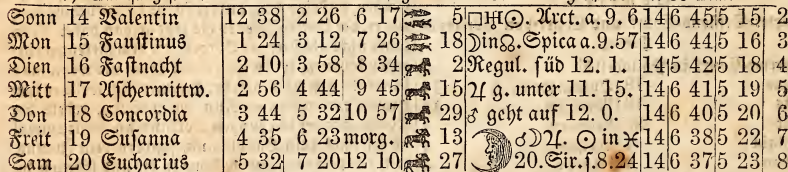 Sonn 14 Valentin 12 38 2 26 6 17 5 □♅☉. Arct. a. 9. 6 14 6 45 5 15 2
Mon 15 Faustinus 1 24 3 12 7 26 18 ☽in☊. Spica a. 9.57 14 6 44 5 16 3
Dien 16 Fastnacht 2 10 3 58 8 34 2 Regul. süd 12. 1. 14 5 42 5 18 4
Mitt 17 Aschermittw. 2 56 4 44 9 45 15 ♃ g. unter 11. 15. 14 6 41 5 19 5
Don 18 Concordia 3 44 5 32 10 57 29 ♂ geht auf 12. 0. 14 6 40 5 20 6
Freit 19 Susanna 4 35 6 23 morg. 13 ☌☽♃. ☉ in ♓ 14 6 38 5 22 7
Sam 20 Eucharius 5 32 7 20 12 10 27 20. Sir. s. 8 24 14 6 37 5 23 8